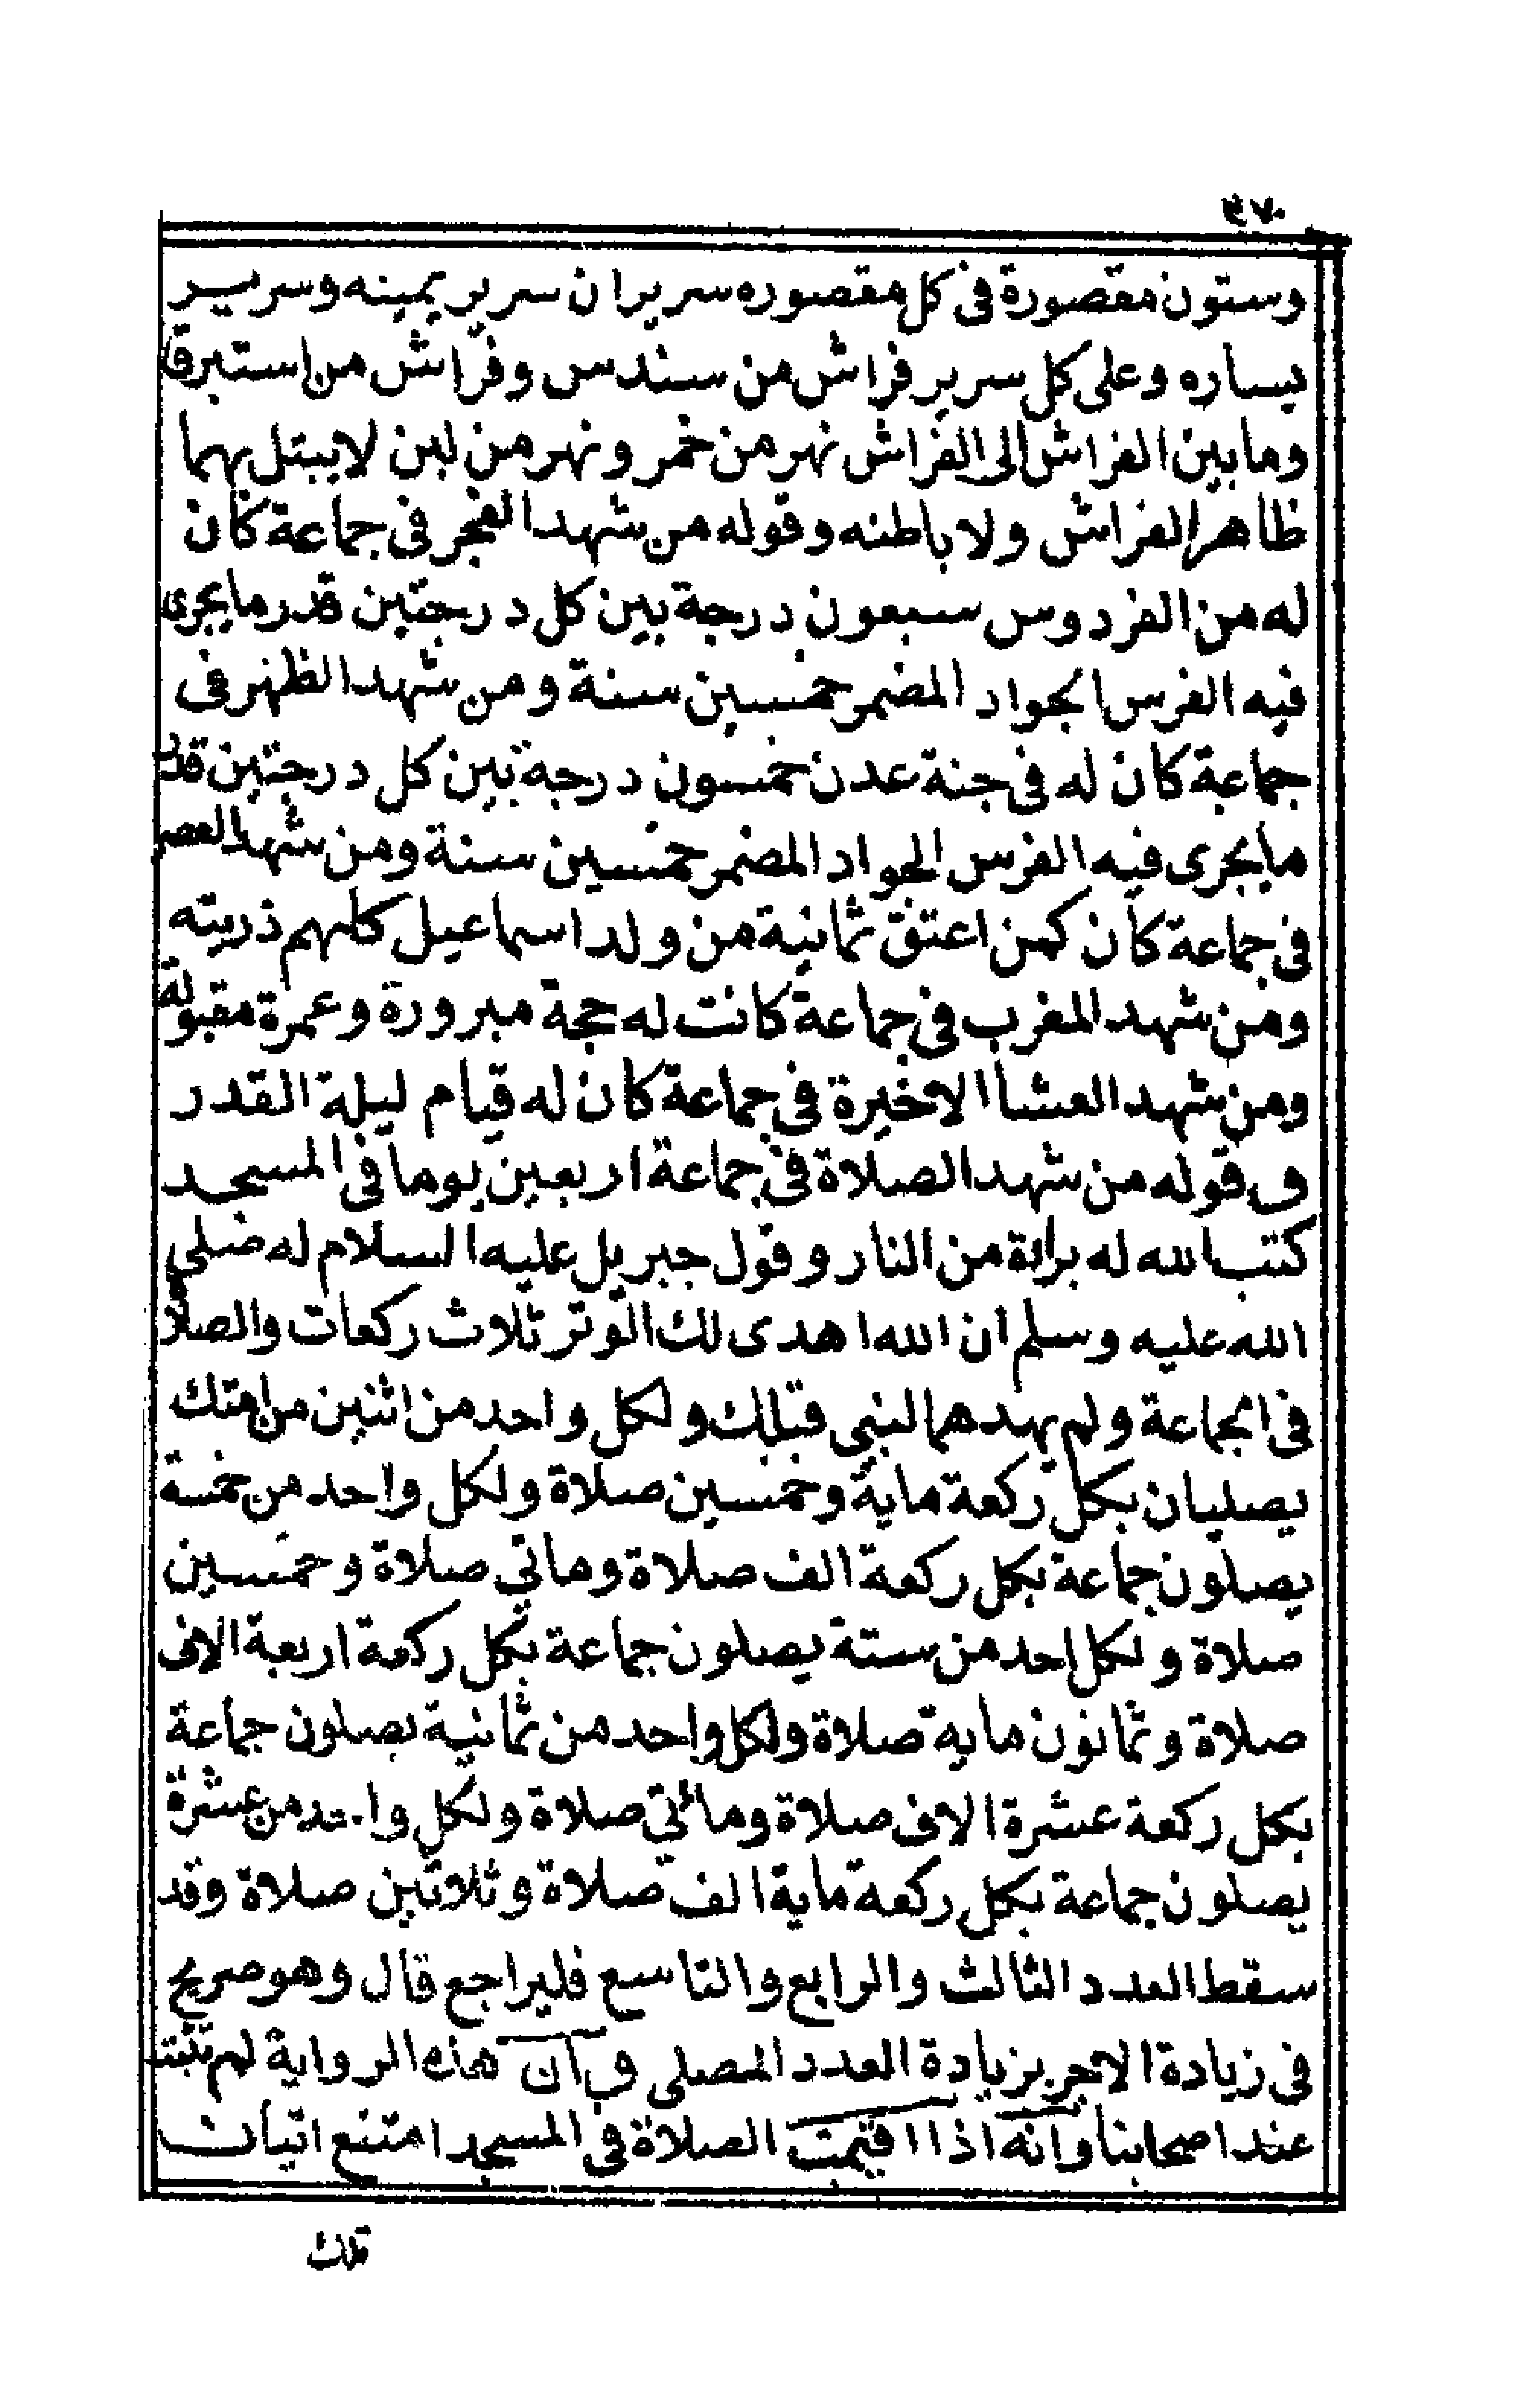 ٤٧٠
وستون مقصورة فى كل مقصوره سريران سرير يمينه وسرير
يساره وعلى كل سرير فراش من سندس وفراش من استبرق
وما بين الفراش الى الفراش نهر من خمر ونهر من لبن لا يبتل بهما
ظاهر الفراش ولا باطنه وقوله من شهد الفجر فى جماعة كان
له من الفردوس سبعون درجة بين كل درجتين قدر ما يجرى
فيه الفرس الجواد المضمر خمسين سنة ومن شهد الظهر فى
جماعة كان له فى جنة عدن خمسون درجة بين كل درجتين قدر
ما يجرى فيه الفرس الجواد المضمر خمسين سنة ومن شهد العصر
فى جماعة كان كمن اعتق ثمانية من ولد اسماعيل كلهم ذريته
ومن شهد المغرب فى جماعة كانت له حجة مبرورة وعمرة مقبولة
ومن شهد العشا الاخيرة فى جماعة كان له قيام ليلة القدر
وقوله من شهد الصلاة فى جماعة اربعين يوما فى المسجد
كتب الله له براءة من النار وقول جبريل عليه السلام له صلى
الله عليه وسلم ان الله اهدى لك الوتر ثلاث ركعات والصلاة
فى الجماعة ولم يهدهما لنبي قبلك ولكل واحد من اثنين من امتك
يصليان بكل ركعة ماية وخمسين صلاة ولكل واحد من خمسة
يصلون جماعة بكل ركعة الف صلاة وماتي صلاة وخمسين
صلاة ولكل احد من ستة يصلون جماعة بكل ركعة اربعة الاف
صلاة وثمانون ماية صلاة ولكل واحد من ثمانية يصلون جماعة
بكل ركعة عشرة الاف صلاة ومائتي صلاة ولكل واحد من عشرة
يصلون جماعة بكل ركعة ماية الف صلاة وثلاثين صلاة وقد
سقط العدد الثالث والرابع والتاسع فليراجع قال وهو صريح
فى زيادة الاجر بزيادة العدد المصلى وبان هذه الرواية لم تثبت
عند اصحابنا وانه اذا اقيمت الصلاة فى المسجد امتنع اتيان
تلك